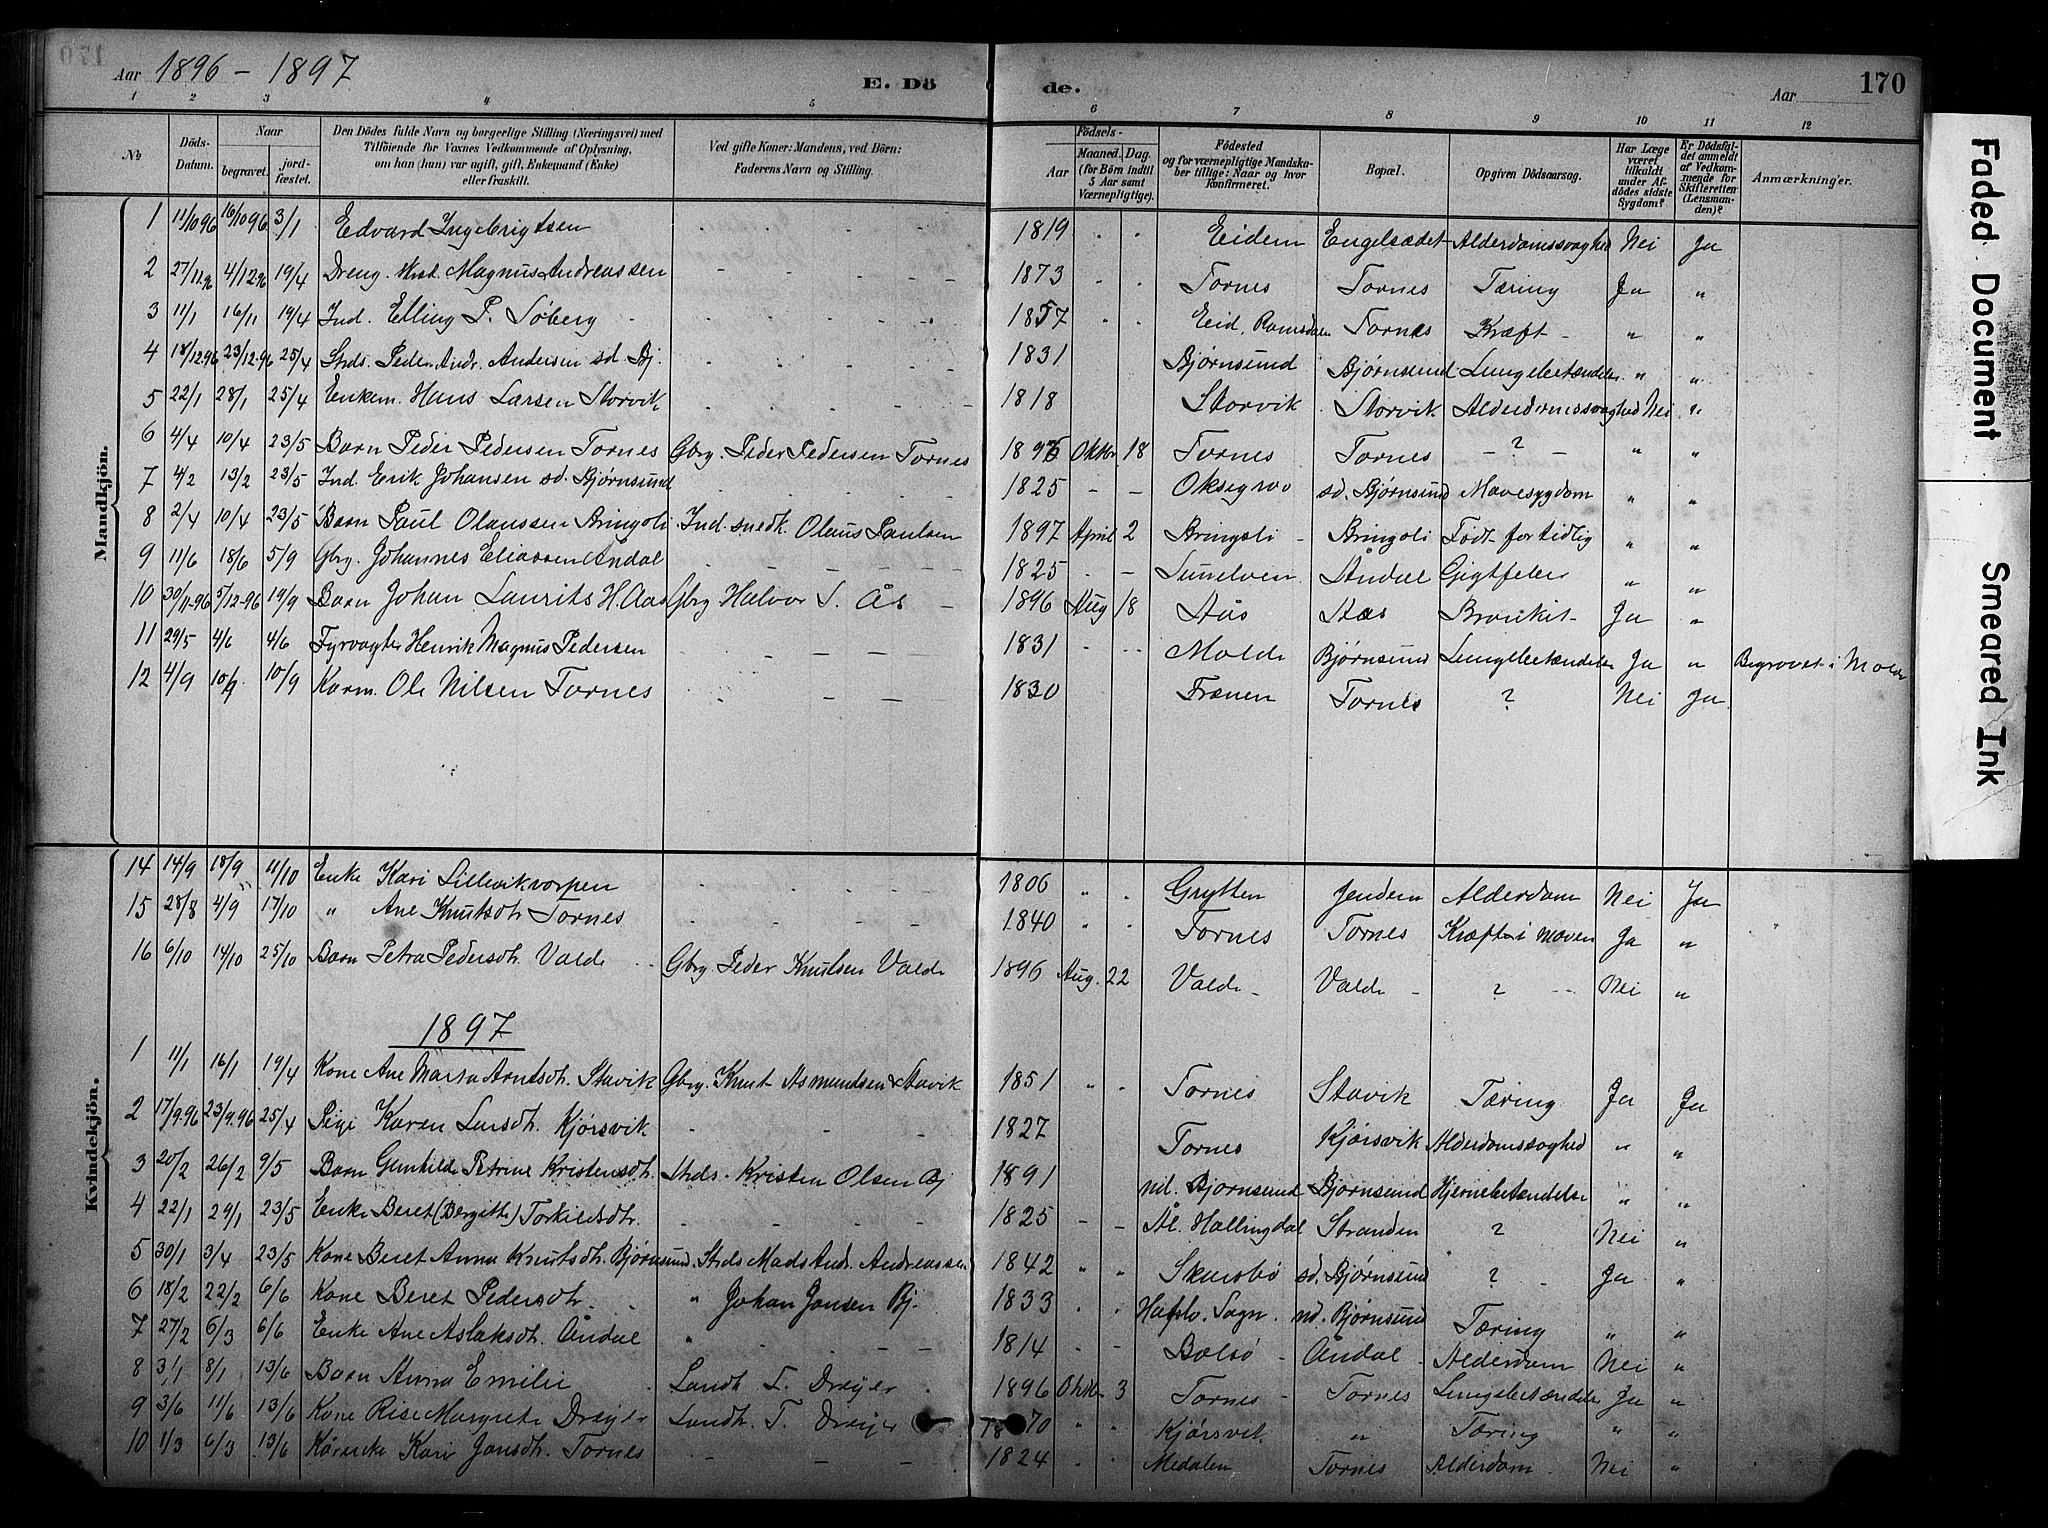 Aar 1896 - 1897 E. Dö de. Aar 170
1 2 3 4 5 6 7 8 9 10 11 12
№ Döds-Datum. Naar begravet. jord-fæstet. Den Dödes fulde Navn og borgerlige Stilling (Næringsvei) med Tilföiende for Voxnes Vedkommende af Oplysning, om han (hun) var ugift, gift, Enkemand (Enke) eller fraskilt. Ved gifte Koner: Mandens, ved Börn: Faderens Navn og Stilling. Födsels- Aar Maaned. Dag. (for Börn indtil 5 Aar samt Værnepligtige). Födested og for værnepligtige Mandskaber tillige: Naar og hvor konfirmeret. Bopæl. Opgiven Dödsaarsag. Har Læge været tilkaldt under Afdödes sidste Sygdom? Er Dödsfaldet anmeldt af Vedkommende for Skifteretten (Lensmanden)? Anmærkninger.
Mandkjön.
1 11/10 96 16/10 96 3/1 Edvard Ingebrigtsen 1819 Eidem Engelsædet Alderdomssvaghed Nei Ja
2 27/11.96 4/12.96 19/4 Dreng Magnus Andreassen 1873 Tornes Tornes Tæring Ja "
3 11/1 16/1 19/4 Ind. Elling P. Söberg 1857 Eid, Romsdalen Tornes Kræft - " "
4 18/12.96 23/12.96 25/4 Strds. Peder Andr. Andersen sd Bj. 1831 Björnsund Björnsund Lungebetændelse " "
5 22/1 28/1 25/4 Enkem. Hans Larsen Storvik 1818 Storvik Storvik Alderdomssvaghed Nei "
6 4/4 10/4 23/5 Barn Peder Pedersen Tornes Gbrg. Peder Pedersen Tornes 1896 Oktbr. 18 Tornes Tornes - ? - " "
7 4/2 13/2 23/5 Ind. Erik Johansen sd. Björnsund 1825 - - sd. Björnsund Mavesygdom " "
8 2/4 10/4 23/5 Barn Paul Olaussen Bringsli Ind. snedk. Olaus Paulsen 1897 April 2 Bringsli - Bringsli Födt for tidlig " "
9 11/6 18/6 5/9 Gbrg. Johannes Eliassen Andal 1825 - - Sunelven Åndal Gigtfeber " "
10 30/11-96 5/12-96 19/9 Barn Johan Laurits H. Aas Gbrg Halvor S. Ås - 1896 Aug 18 Aas Aas Bronkit - Ja "
11 29/5 4/6 4/6 Fyrvogter Henrik Magnus Pedersen 1831 Molde Björnsund Lungebetændelse Ja " Begravet i Molde
12 4/9 10/9 10/9 Karm. Ole Nilsen Tornes 1830 Frænen Tornes ? Nei Ja
Kvindekjön.
14 14/9 18/9 11/10 Enke Kari Lillevikvorpen 1806 " Grytten Jendem Alderdom Nei Ja
15 28/8 4/9 17/10 " Ane Knutsdtr. Tornes 1840 " Tornes Tornes Kræft i maven Ja "
16 6/10 14/10 25/10 Barn Petra Pedersdtr. Valde Gbrg. Peder Knutsen Valde 1896 Aug. 22 Valde - Valde - ? - - Nei "
1897
1 11/1 16/1 19/4 Kone Ane Marta Arntsdtr. Stavik Gbrg. Knut Asmundsen Stavik 1851 " Tornes Stavik Tæring Ja Ja
2 17/9.96 23/9.96 25/4 Pige Karen Larsdtr. Kjörsvik 1827 Tornes Kjörsvik Alderdomssvaghed " "
3 20/2 26/2 9/5 Barn Gunhilde Petrine Kristensdtr. Strds. Kristen Olsen Bj 1891 nd. Björnsund Björnsund Hjernebetændelse " "
4 22/1 29/1 23/5 Enke Beret (Bergitte) Torkildsdtr. 1825 - - Ål. Hallingdal Stranden ? Nei "
5 30/1 3/4 23/5 Kone Beret Anna Knutsdtr. Björnsund Strds Mads Andr. Andreassen 1842 " " Skarsbö sd. Björnsund ? - Ja "
6 18/2 22/2 6/6 Kone Beret Pedersdtr. " Johan Jansen Bj. 1833 Hafslo. Sogn. nd. Björnsund Tæring " "
7 27/2 6/3 6/6 Enke Ane Aslaksdtr. Åndal " 1814 Bolsö - Åndal - Alderdom Nei "
8 3/1 8/1 13/6 Barn Anna Emilie Landh. T. Dreyer 1896 Oktbr. 3 Tornes Tornes Lungebetændelse Ja "
9 3/6 11/6 13/6 Kone Margrete Dreyer Landh. T. Dreyer 1870 " Kjörsvik " Tæring " "
10 1/3 6/3 13/6 Kari Jonsdtr. Tornes 1824 Medalen Tornes Alderdom Nei "
Faded Document
Smeared Ink